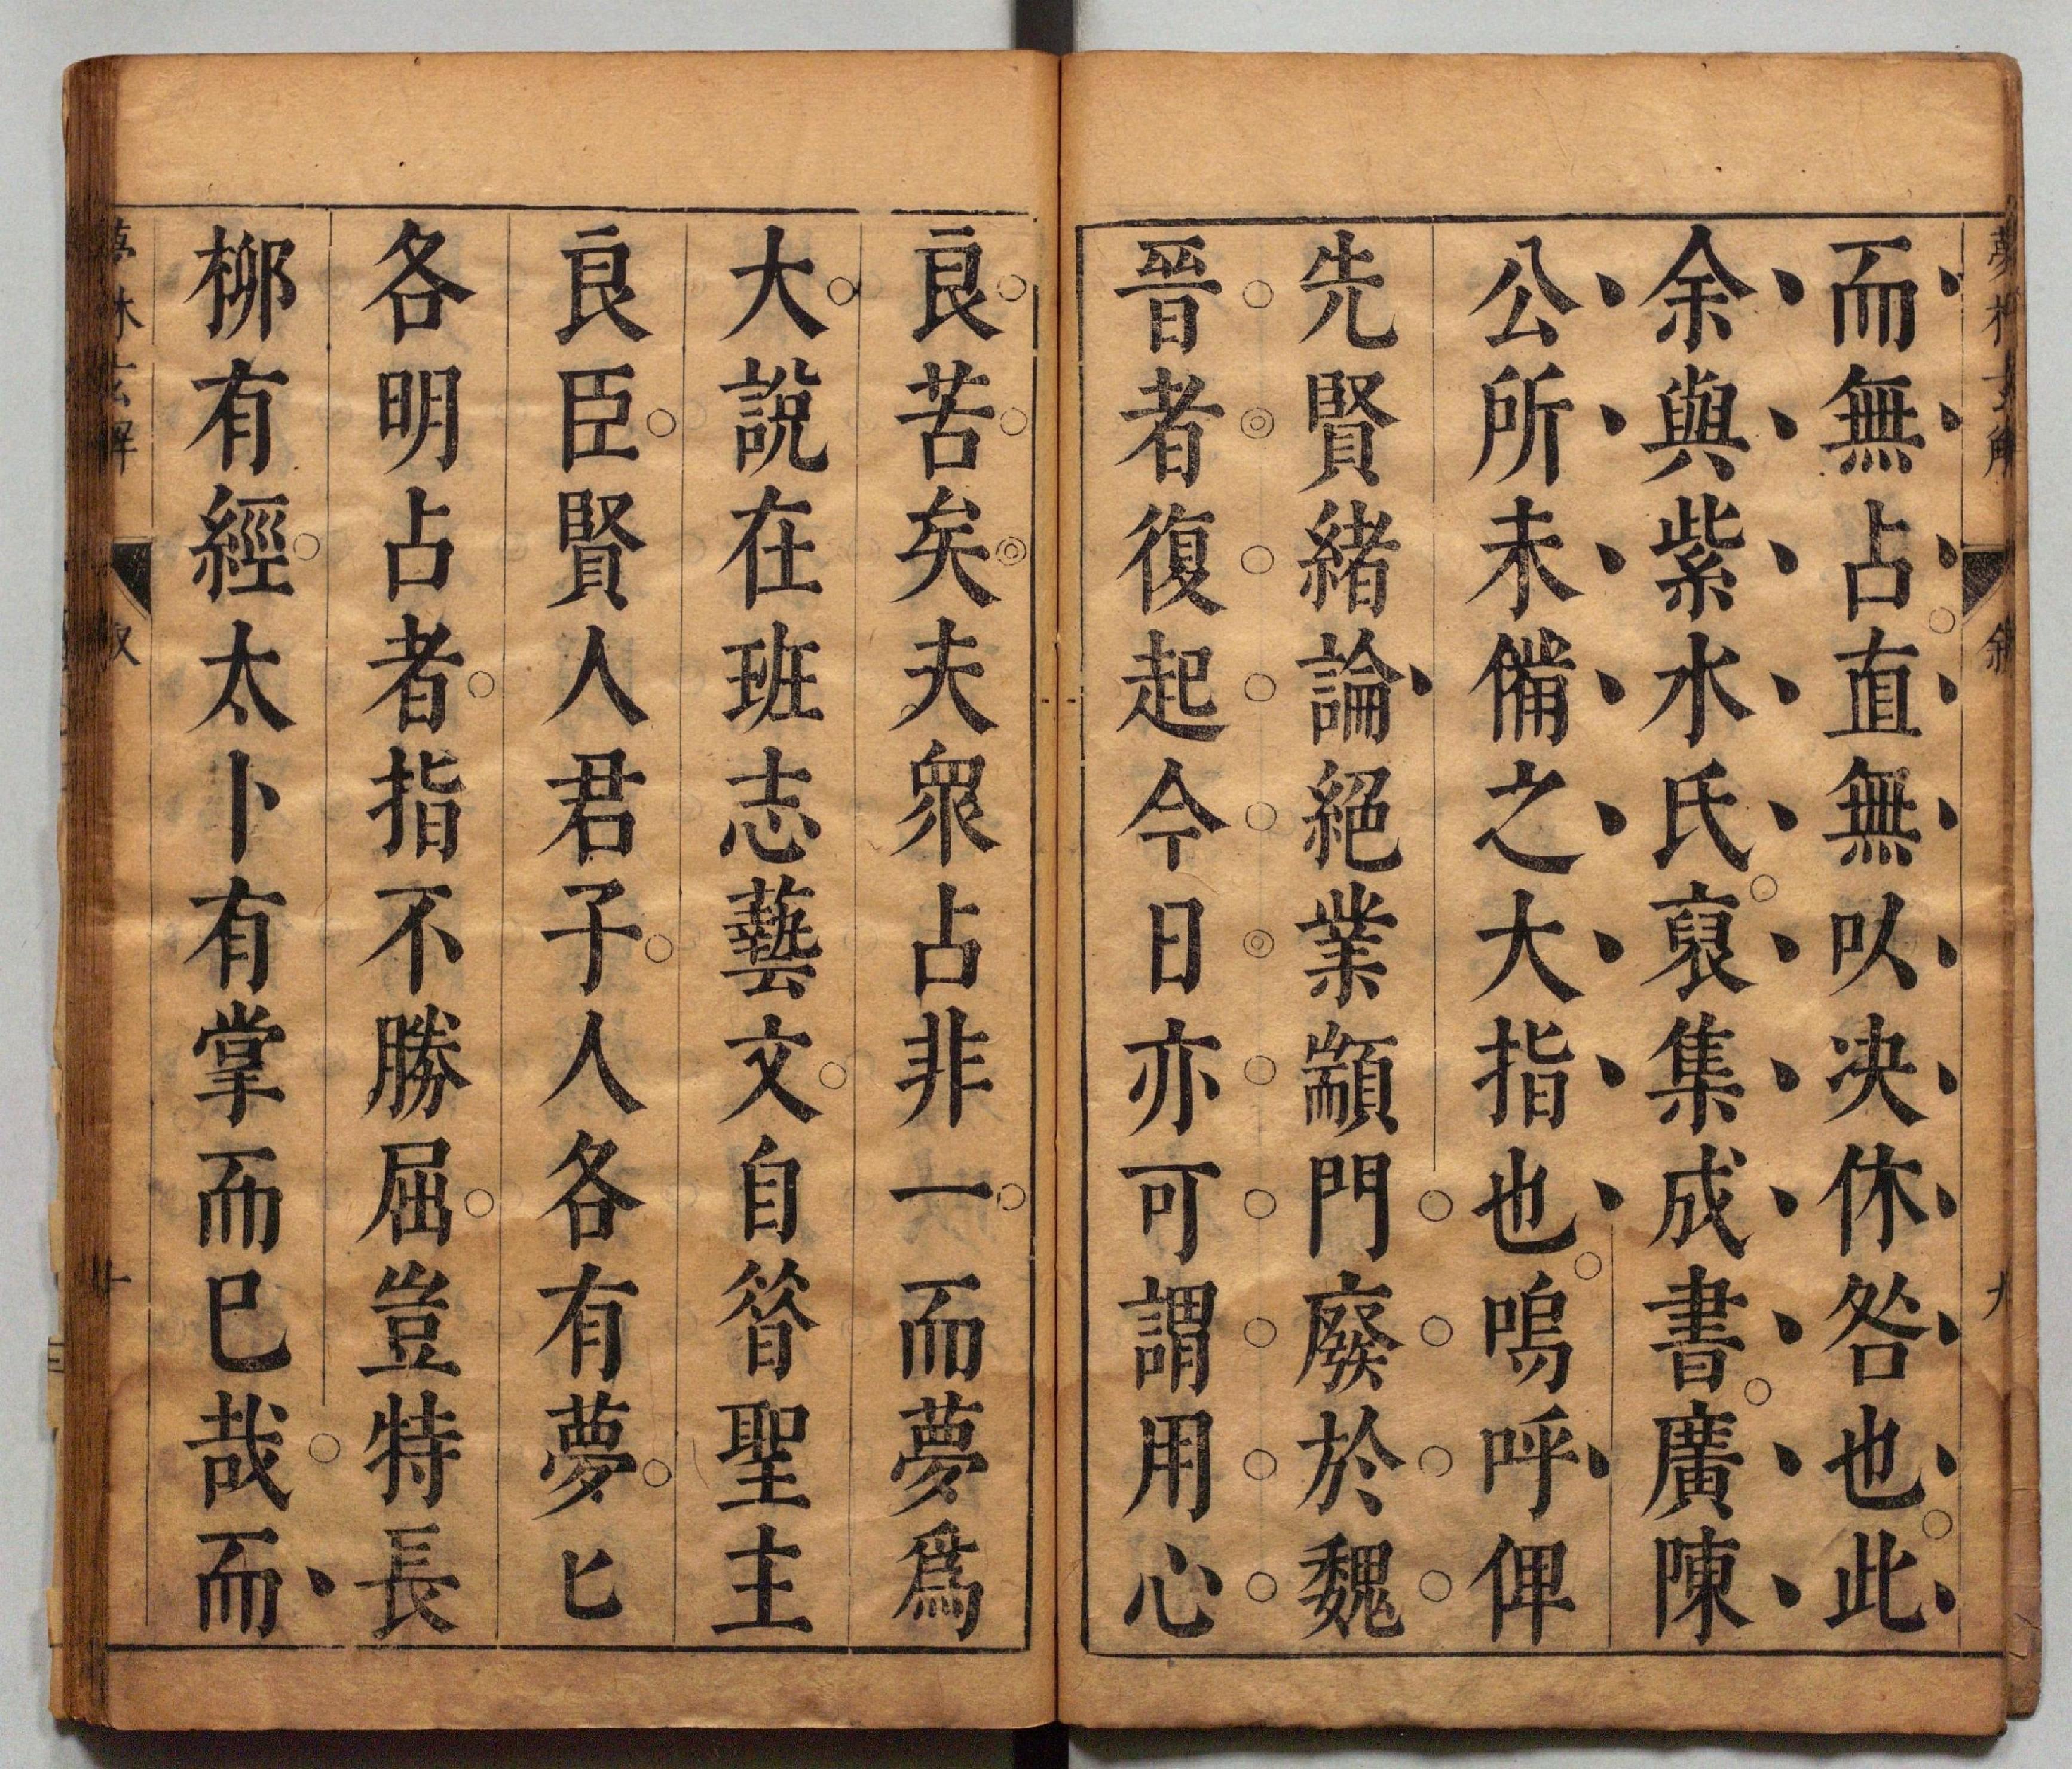 夢林玄解 敘 九
而無占直無以决休咎也此
余與紫水氏裒集成書廣陳
公所未備之大指也嗚呼俾
先賢緒論絕業顓門廢於魏
晉者復起今日亦可謂用心
良苦矣夫眾占非一而夢爲
大說在班志藝文自昝聖主
良臣賢人君子人各有夢匕
各明占者指不勝屈豈特長
桺有經太卜有掌而巳哉而
夢林玄解 敘 十